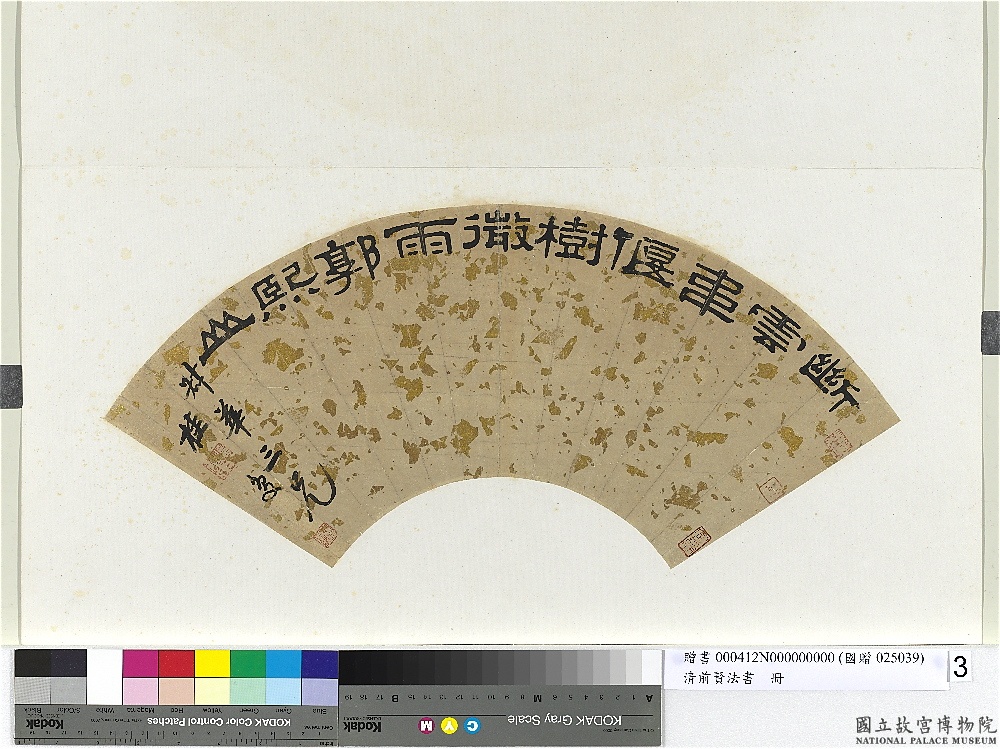 韋偃樹微雨郭熙山
叔華三兄
桂
贈書 000412N000000000 (國贈 025039)
清前賢法書　冊
3
Kodak
KODAK Color Control Patches
Blue
Cyan
Green
Yellow
Red
Magenta
White
3/Color
Black
KODAK Gray Scale
Kodak
C
Y
M
A 1 2 3 4 5 6 M 8 9 10 11 12 13 14 15 B 17 18 19
國立故宮博物院
NATIONAL PALACE MUSEUM